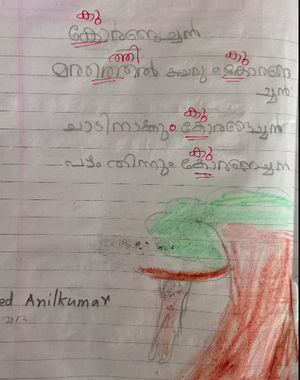 കു
കോരങ്ങച്ചൻ
ത്തി കു
കയറും കോരങ്ങ
ച്ചൻ
കു
ചാടിനാക്കും കോരങ്ങച്ചൻ
കു
പഴം തിന്നും കോരങ്ങച്ചൻ
ed Anilkumar